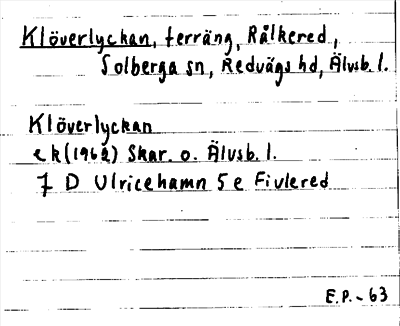 Klöverlyckan, terräng, Rålkered,
Solberga sn, Redvägs hd, Älvsb. l.
Klöverlyckan
ek (1962) Skar. o. Älvsb. l.
7 D Ulricehamn 5 e Fivlered
E.P. - 63